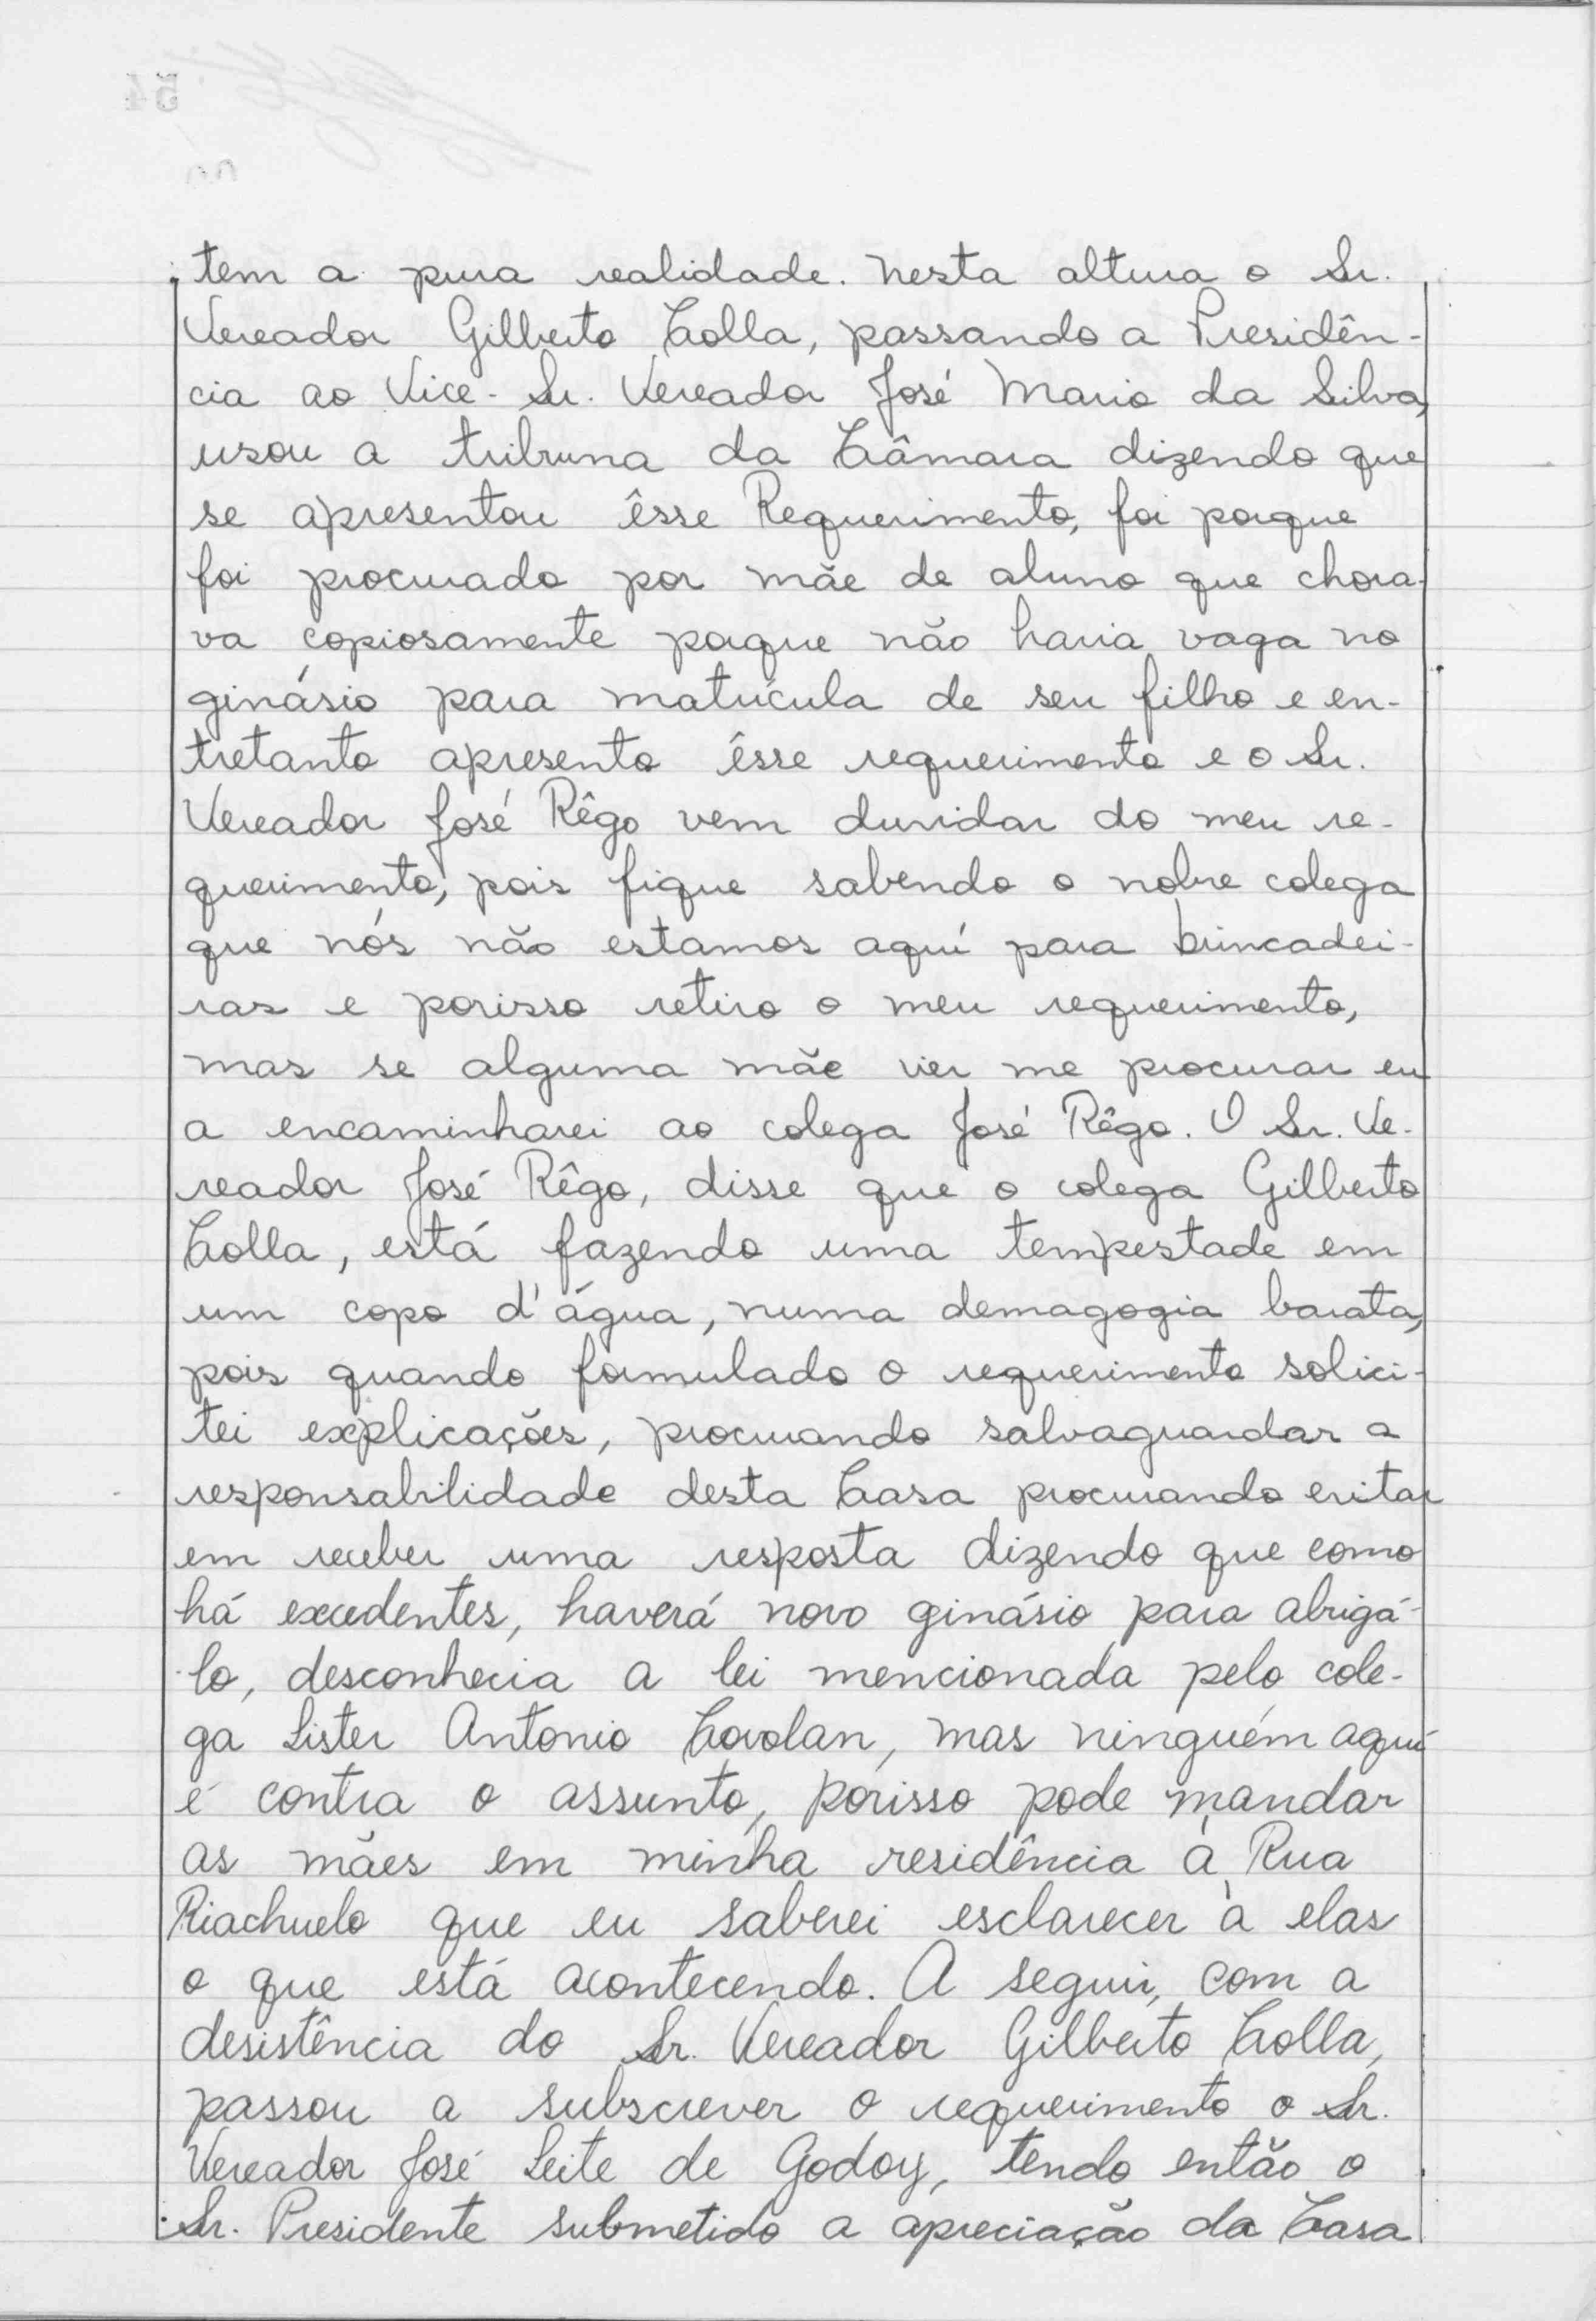 tem a pura realidade. Nesta altura o Sr.
Vereador Gilberto Colla, passando a Presidên-
cia ao Vice-Sr. Vereador José Mario da Silva,
usou a tribuna da Câmara dizendo que
se apresentou êsse Requerimento, foi porque
foi procurado por mãe de aluno que chora-
va copiosamente porque não havia vaga no
ginásio para matrícula de seu filho e en-
tretanto apresento êsse requerimento e o Sr.
Vereador José Rêgo vem duvidar do meu re-
querimento, pois fique sabendo o nobre colega
que nós não estamos aquí para brincadei-
ras e porisso retiro o meu requerimento,
mas se alguma mãe vier me procurar eu
a encaminharei ao colega José Rêgo. O Sr. Ve-
reador José Rêgo, disse que o colega Gilberto
Colla, está fazendo uma tempestade em
um copo d'água, numa demagogia barata,
pois quando formulado o requerimento solici-
tei explicações, procurando salvaguardar a
responsabilidade desta Casa procurando evitar
em receber uma resposta dizendo que como
há excedentes, haverá novo ginásio para abrigá-
lo, desconhecia a lei mencionada pelo cole-
ga Lister Antonio Covolan, mas ninguém aquí
é contra o assunto, porisso pode mandar
as mães em minha residência à Rua
Riachuelo que eu saberei esclarecer à elas
o que está acontecendo. A seguir, com a
desistência do Sr. Vereador Gilberto Colla,
passou a subscrever o requerimento o Sr.
Vereador José Leite de Godoy, tendo então o
Sr. Presidente submetido a apreciação da Casa